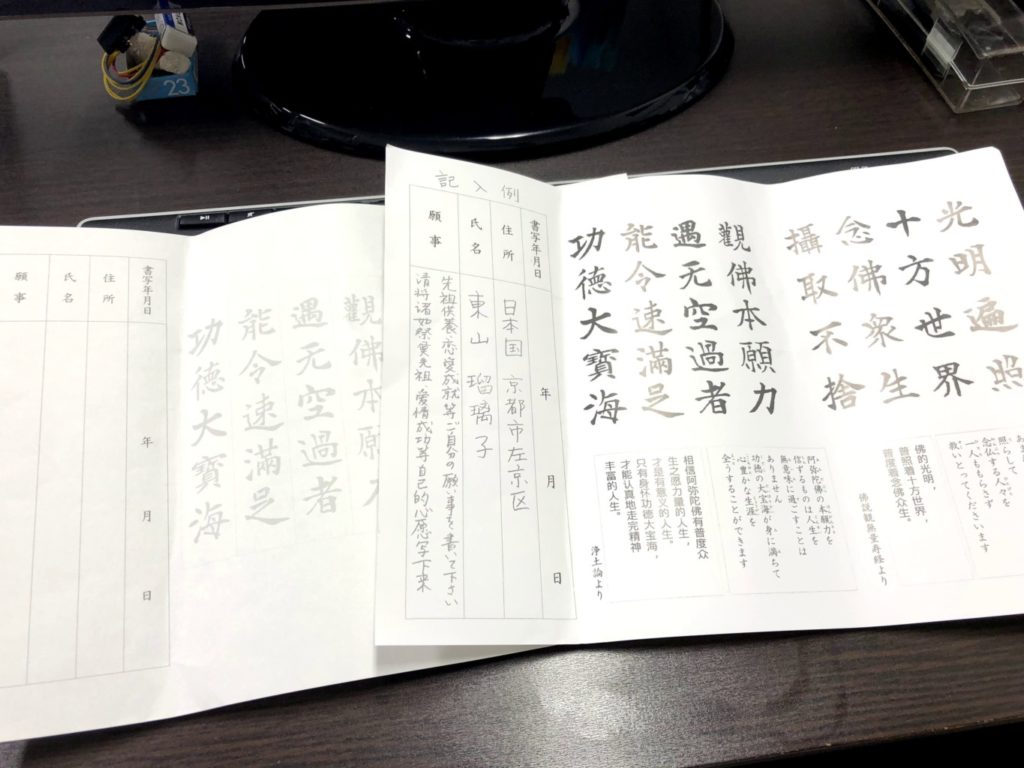 光明遍照
十方世界
念佛衆生
攝取不捨
照らして
念仏する人々を
一人ももらさず
救いとってくださいます
佛的光明，
普照着十方世界，
普度着念佛众生。
佛説観無量寿経より
觀佛本願力
遇无空過者
能令速滿足
功德大寶海
阿弥陀佛の本願力を
信ずるものは人生を
無意味に過ごすことは
ありません
功徳の大宝海が身に満ちて
心豊かな生涯を
全うすることができます
相信阿弥陀佛有普度众
生之愿力量的人生，
才是有意义的人生。
只有身怀功德大宝海，
才能认真地走完精神
丰富的人生。
浄土論より
記入例
書写年月日 年 月 日
住所 日本国 京都市左京区
氏名 東山 瑠璃子
願事 先祖供養、恋愛成就等ご自分の願い事を書いて下さい
请将诸如祭奠先祖 爱情成功等自己的心愿写下来
觀佛本願力
遇无空過者
能令速滿足
功德大寶海
書写年月日 年 月 日
住所
氏名
願事
23